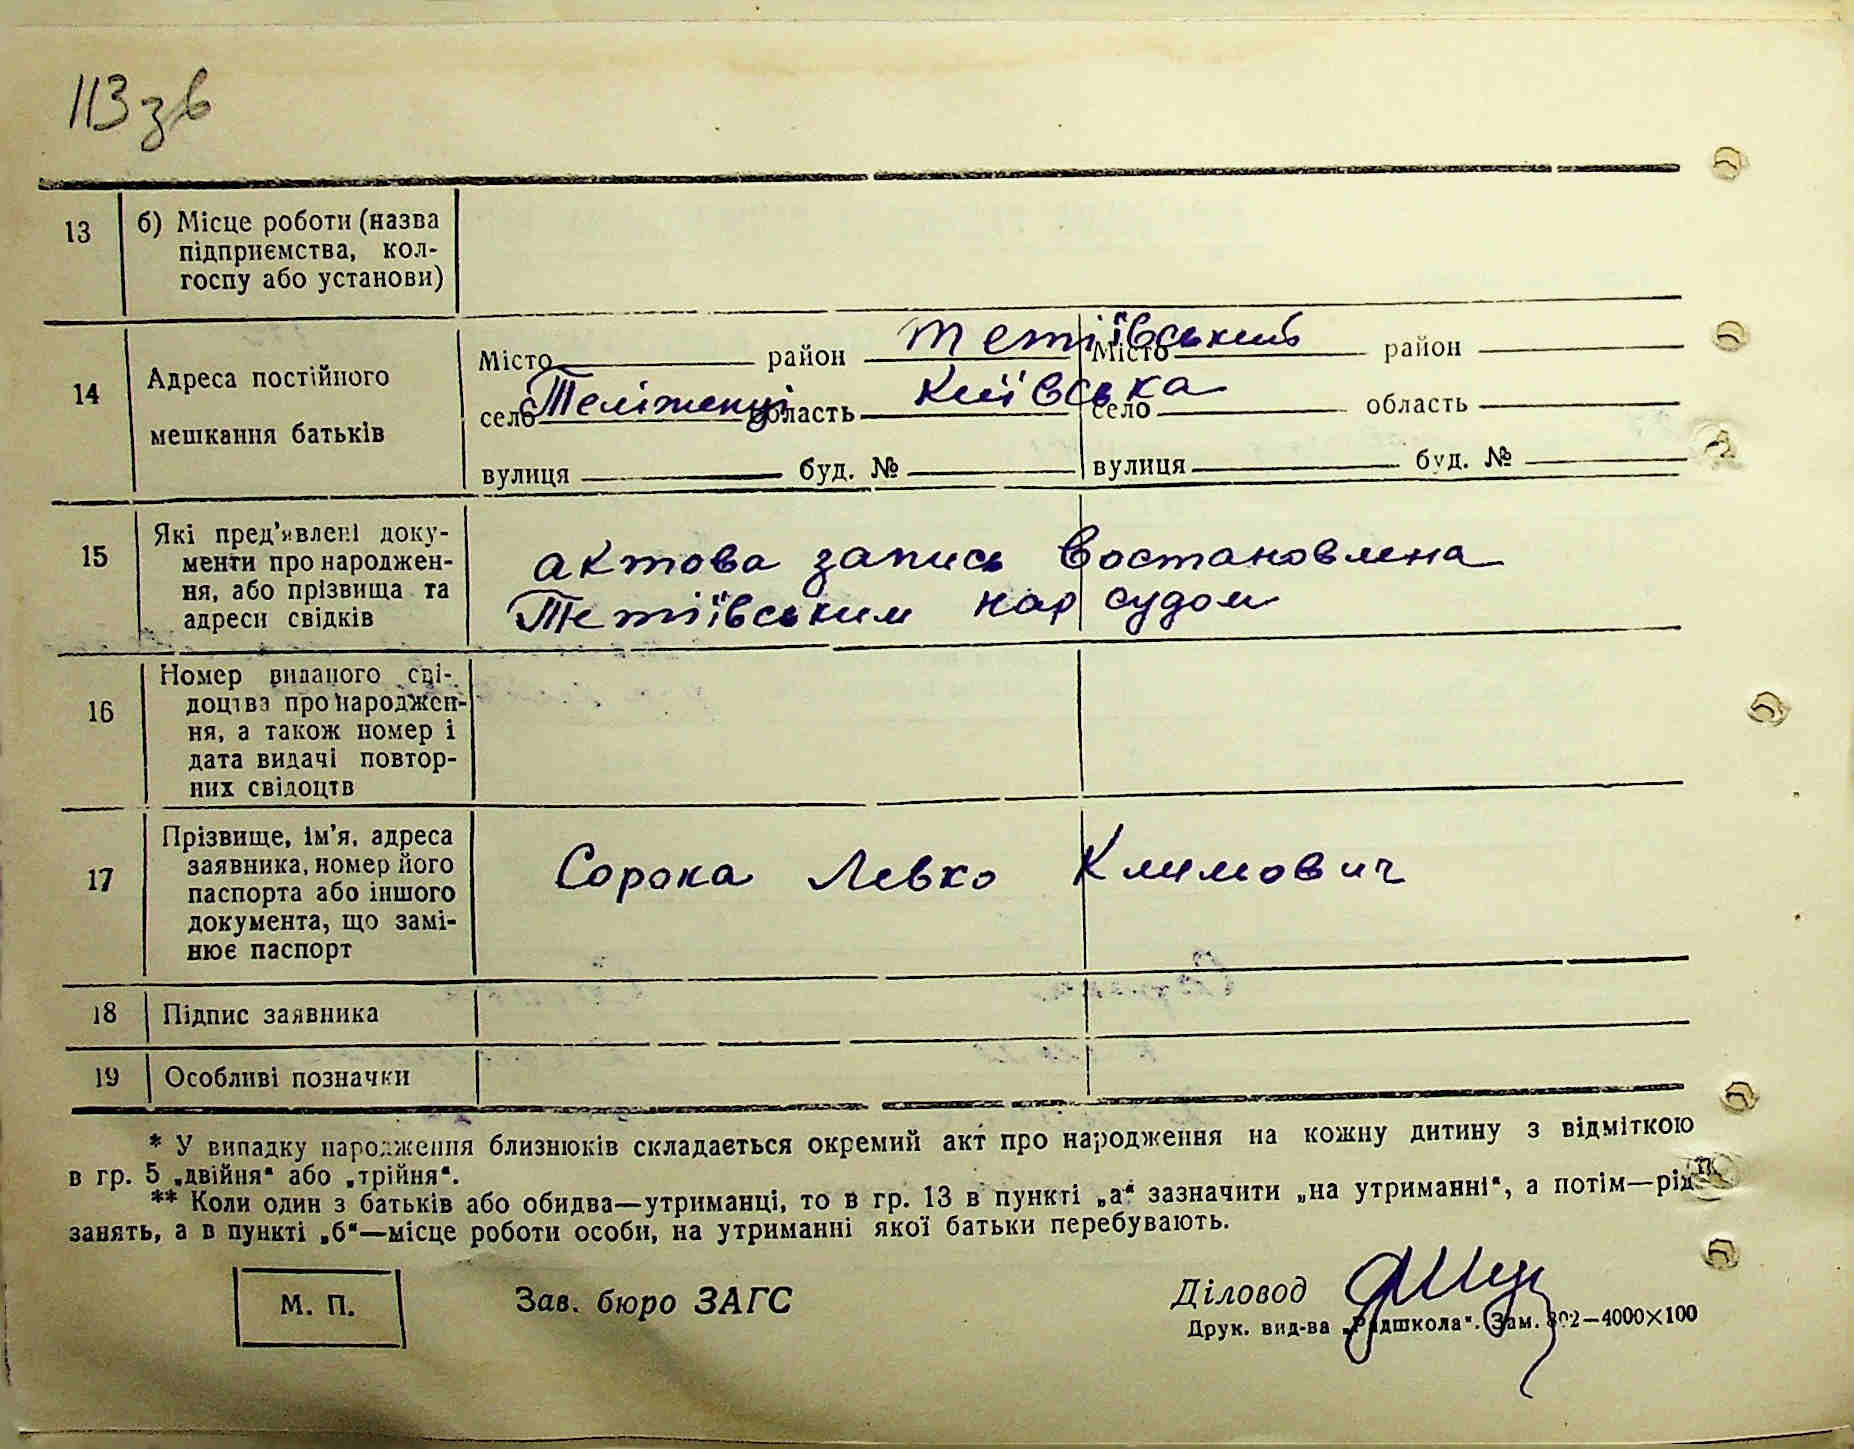 113 зв
13 б) Місце роботи (назва
підприємства, кол-
госпу або установи)
14 Адреса постійного
мешкання батьків
Місто район Тетіївський Місто район
село Теліженці область Київська село область
вулиця буд. № вулиця буд. №
15 Які пред'явлені доку-
менти про народжен-
ня, або прізвища та
адреси свідків
актова запись востановлена
Тетіївським нар судом
16 Номер виданого сві-
доцтва про народжен-
ня, а також номер і
дата видачі повтор-
них свідоцтв
17 Прізвище, ім'я, адреса
заявника, номер його
паспорта або іншого
документа, що замі-
нює паспорт
Сорока Левко Климович
18 Підпис заявника
19 Особливі позначки
* У випадку народження близнюків складається окремий акт про народження на кожну дитину з відміткою
в гр. 5 „двійня“ або „трійня“.
** Коли один з батьків або обидва—утриманці, то в гр. 13 в пункті „а“ зазначити „на утриманні“, а потім—рід
занять, а в пункті „б“—місце роботи особи, на утриманні якої батьки перебувають.
М. П. Зав. бюро ЗАГС Діловод
Друк. вид-ва „Радшкола“. Зам. 802—4000×100